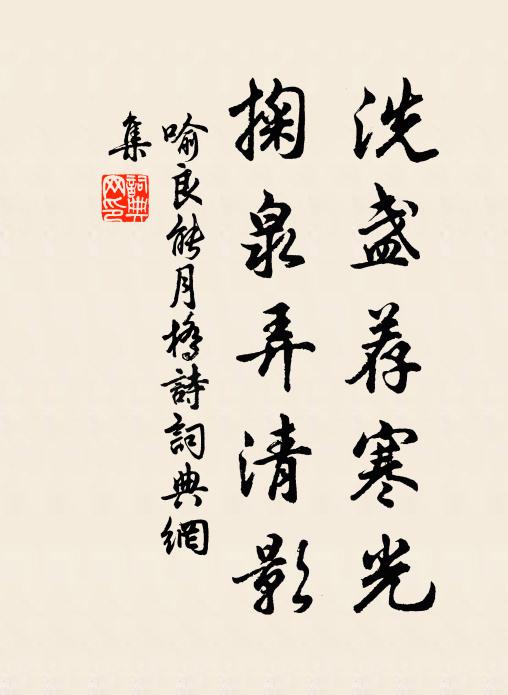 洗盏荐寒光
掬泉弄清影
喻良能月橋詩詞典網
集
詞典
网印